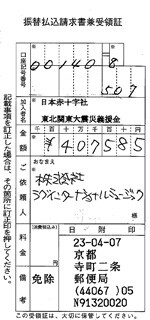 振替払込請求書兼受領証
口座記号番号
00140 8
507
加入者名
日本赤十字社
東北関東大震災義援金
金額
千 百 十 万 千 百 十 円
¥407585
ご依頼人
おなまえ
株式会社
ラウンダーインターナショナルミュージック
料金
(消費税込み)
日附印
23-04-07
京都
寺町二条
郵便局
(44067)05
N91320020
備考
免除
記載事項を訂正した場合は、その箇所に訂正印を押してください。
この受領証は、大切に保管してください。